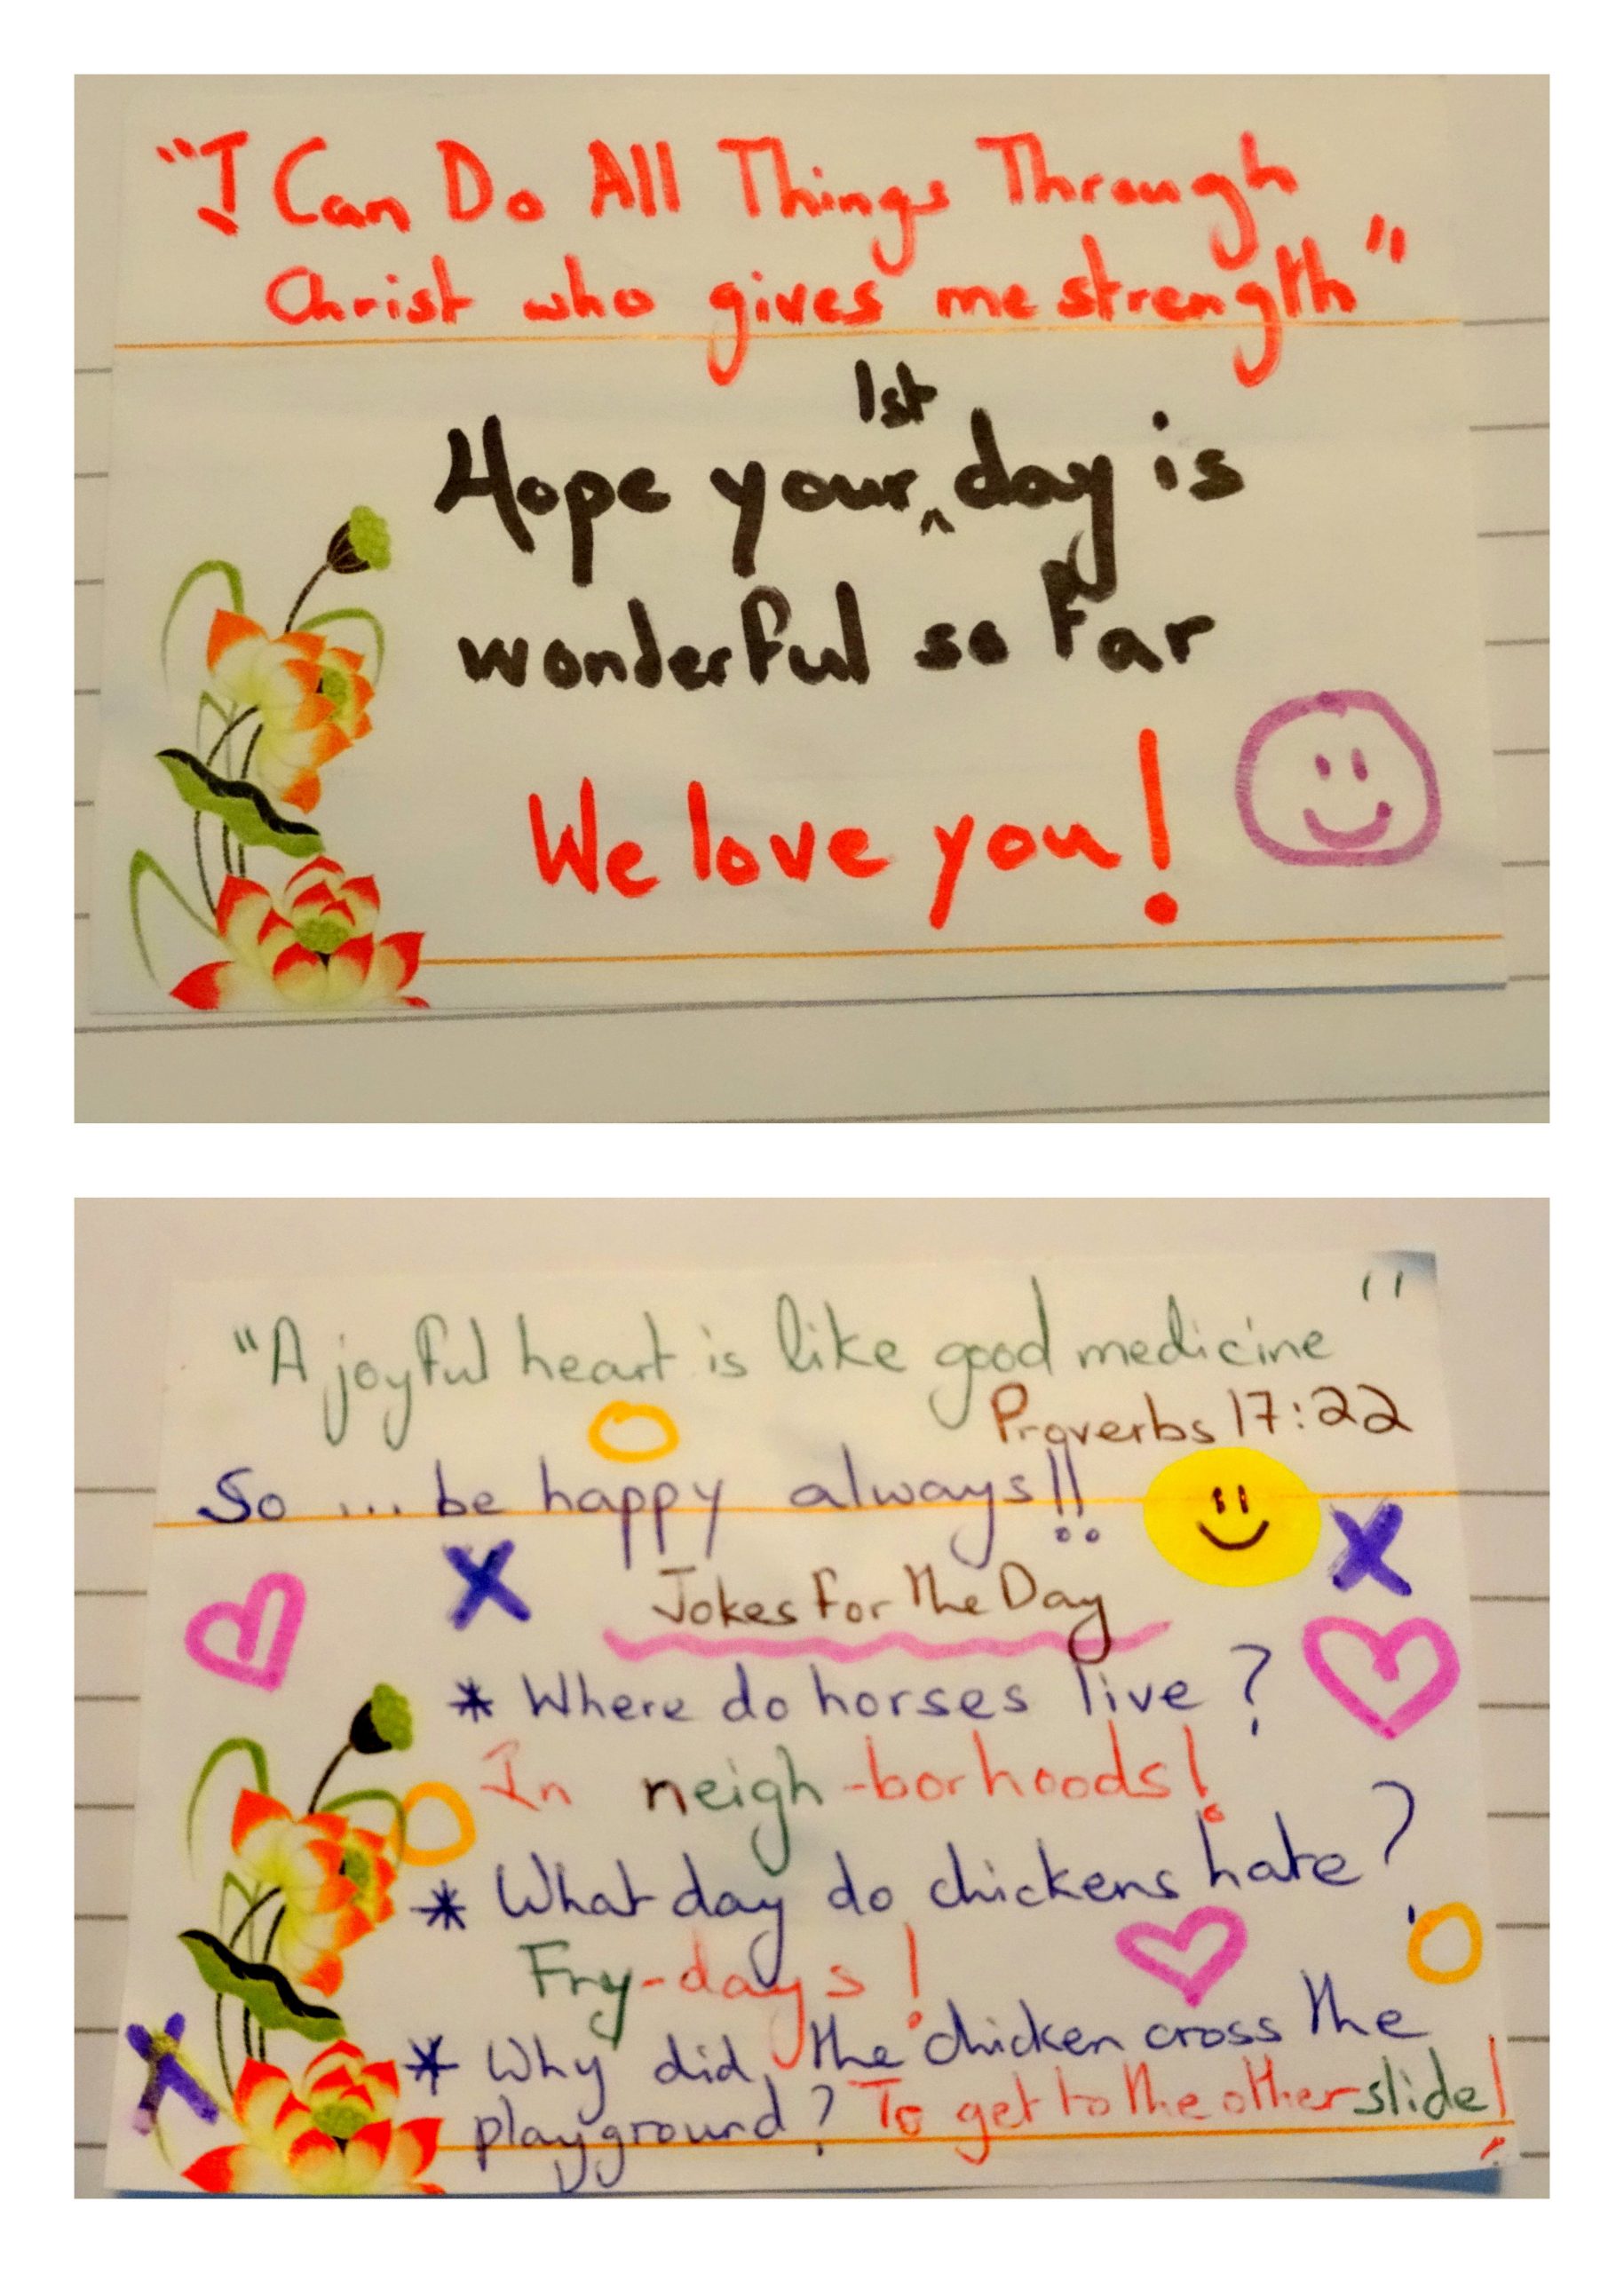 "I Can Do All Things Through
Christ who gives me strength"
1st
Hope your ^ day is
wonderful so far
We love you!
"A joyful heart is like good medicine"
Proverbs 17:22
So ... be happy always!!
Jokes For The Day
* Where do horses live?
In neigh-borhoods!
* What day do chickens hate?
Fry-days!
* Why did the chicken cross the
playground? To get to the other slide!